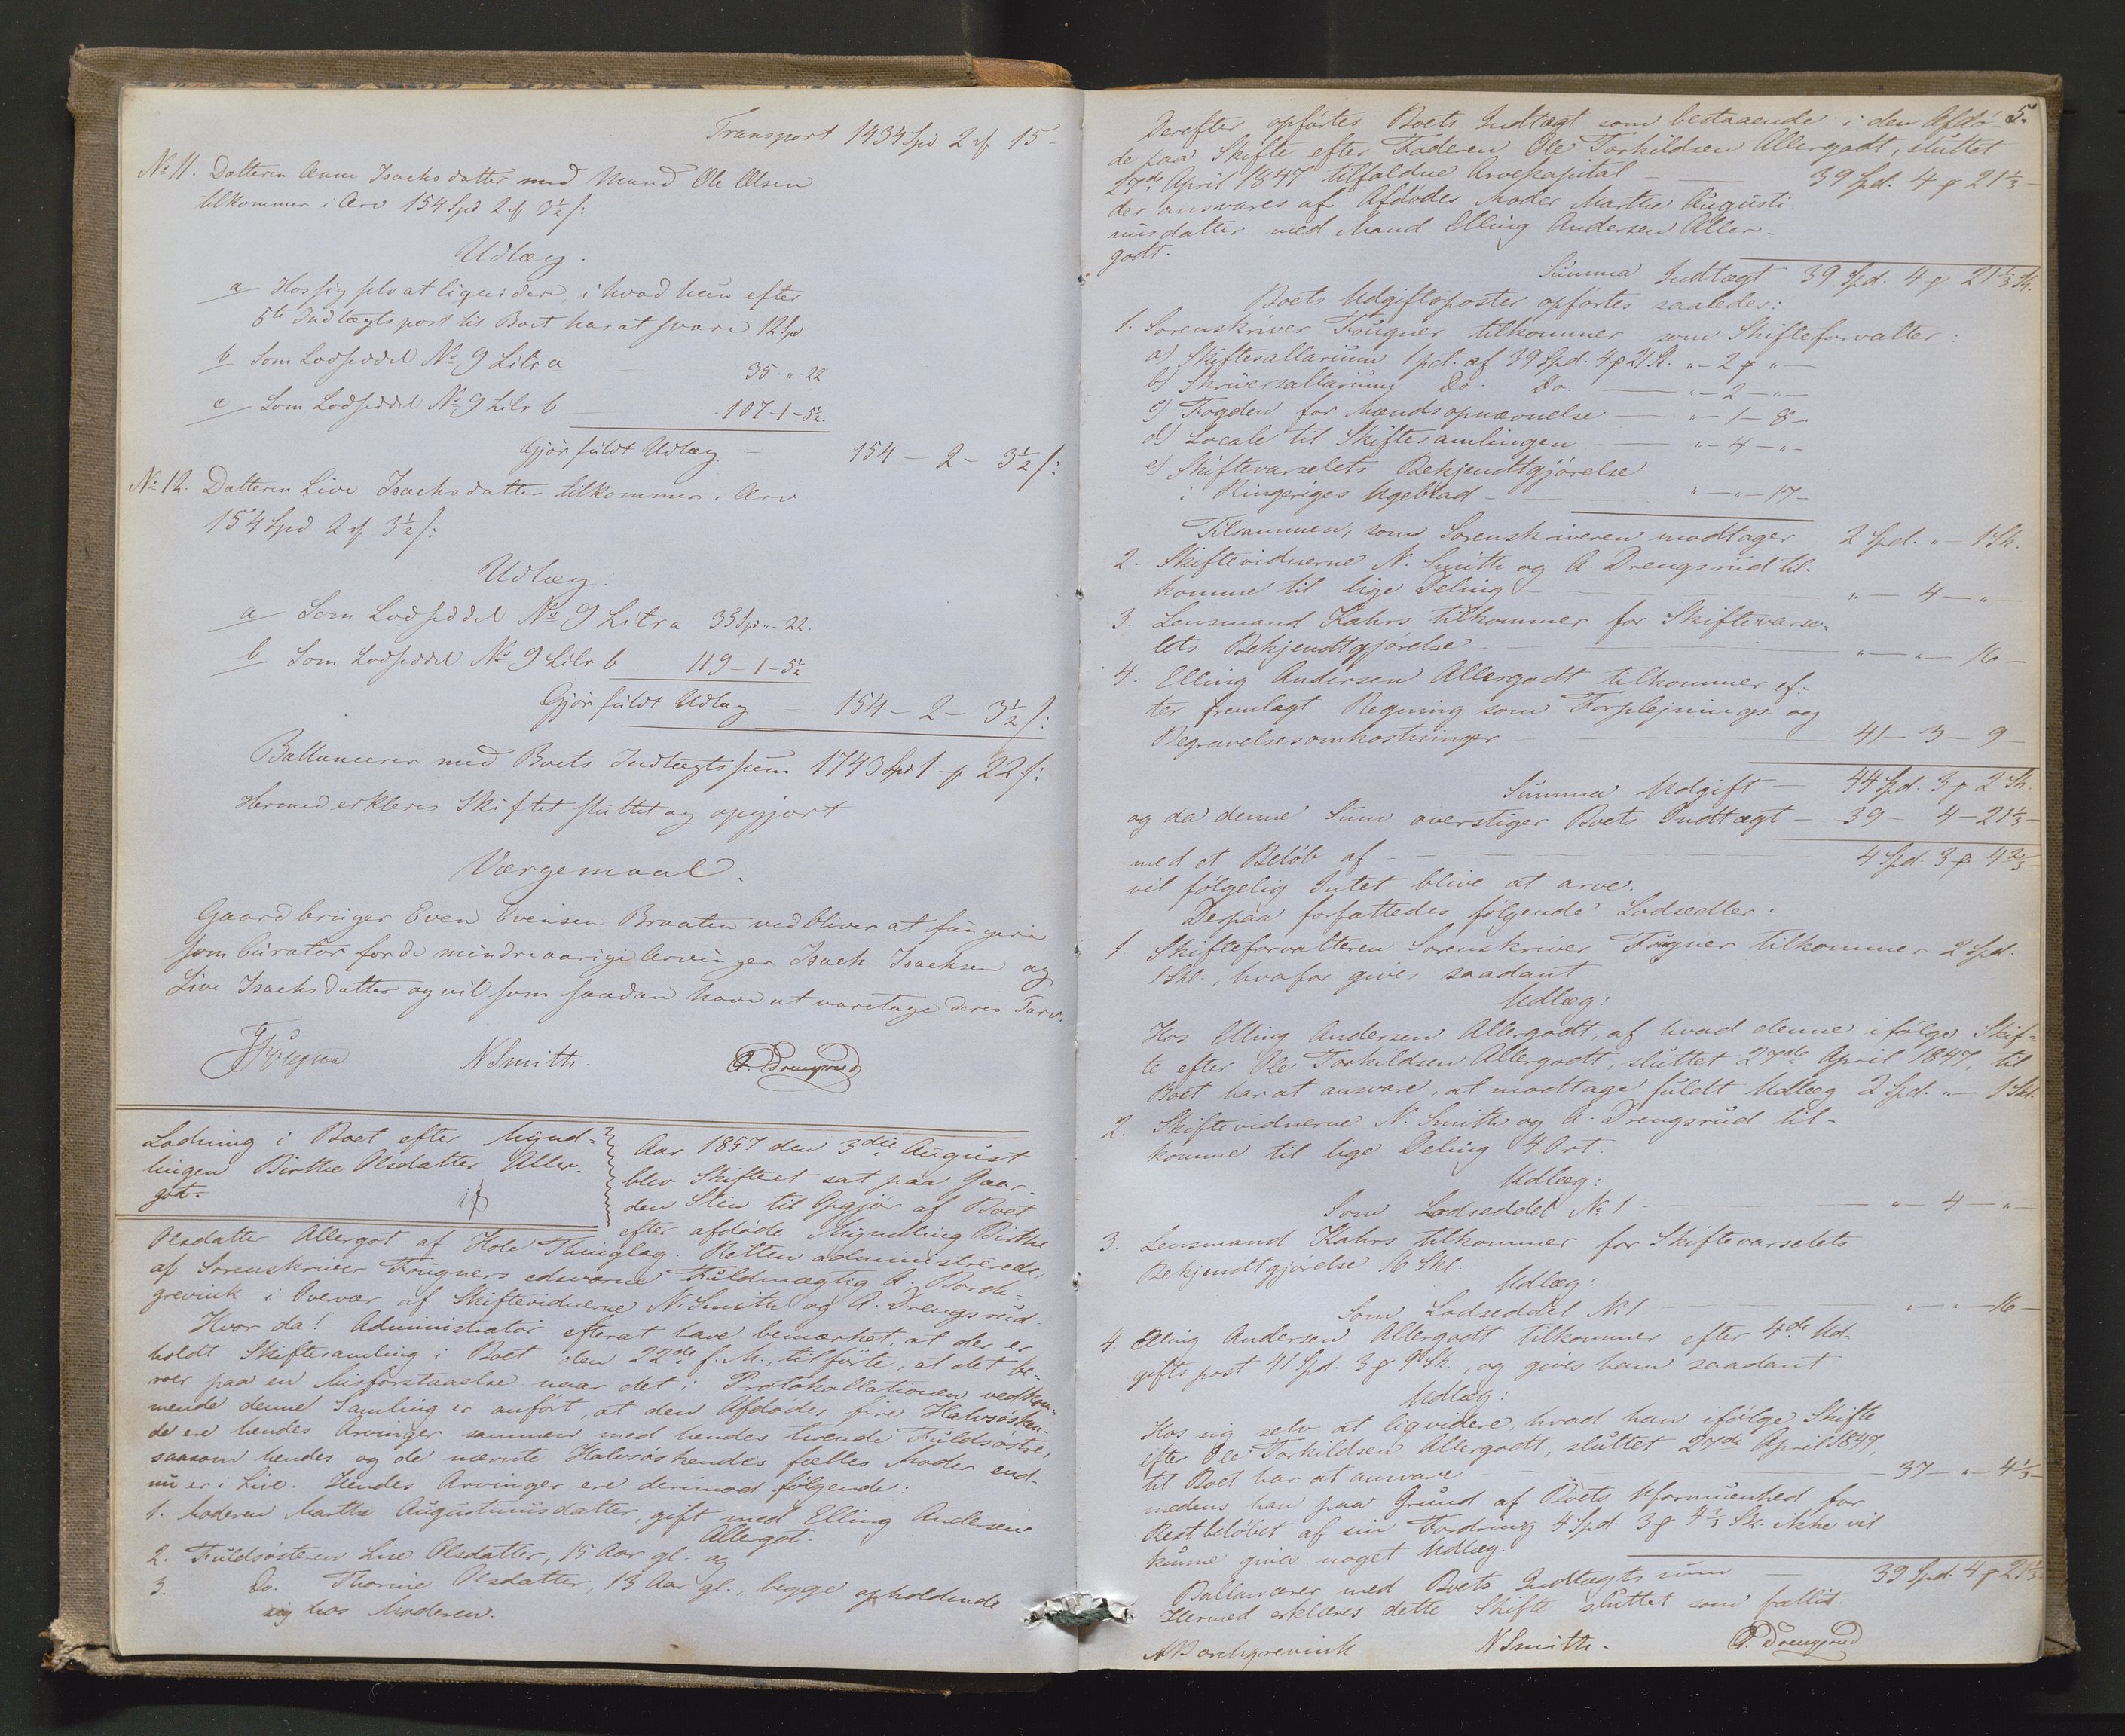 Transport 1434 Spd 2 ꝑ 15 -
No 11. Datteren Anne Isachsdatter med Mand Ole Olsen
tilkommer i Arv 154 Spd 2 ꝑ 3½ ſ:
Udlæg.
a Hos sig selv at liquidere, i hvad hun efter
5te Indtægtspost til Boet har at svare 12 Spd
b Som Lodseddel No 9 Litr a 35 - " - 22
c Som Lodseddel No 9 Litr b 107 - 1 - 5½.
Gjør fuldt Udlæg - 154 - 2 - 3½ ſ:
No 12. Datteren Live Isachsdatter tilkommer i Arv
154 Spd 2 ꝑ 3½ ſ:
Udlæg.
a Som Lodseddel No 9 Litr a 35 Spd " - 22.
b Som Lodseddel No 9 Litr b 119 - 1 - 5½
Gjør fuldt Udlæg - 154 - 2 - 3½ ſ:
Ballancerer med Boets Indtægtssum 1743 Spd 1 ꝑ 22 ſ:
Hermed erkleres Skiftet sluttet og opgjort
Værgemaal.
Gaardbruger Even Evensen Braaten vedbliver at fungere
som Curator for de mindreaarige Arvinger Isach Isachsen og
Live Isachsdatter og vil som saadan have at varetage deres Tarv.
Fougner N Smith. A. Drengsrud
Lodning i Boet efter Mynd-
lingen Birthe Olsdatter Aller-
got.
Aar 1857 den 3die August
blev Skifteret sat paa Gaar-
den Sten til Opgjør af Boet
efter afdøde Myndling Birthe
Olsdatter Allergot af Hole Thinglag. Retten administreredes
af Sorenskriver Fougners edsvorne Fuldmægtig A. Borch-
grevink i Overvær af Skiftevidnerne N. Smith og A. Drengsrud.
Hvor da! Administrator efterat have bemærket, at der er
holdt Skiftesamling i Boet den 22de f. M., tilførte, at det be-
roer paa en Misforstaaelse naar det i Protokollationen vedkom-
mende denne Samling er anført, at den Afdødes fire Halvsøsken-
de ere hendes Arvinger sammen med hendes tvende Fuldsøstre,
saasom hendes og de nævnte Halvsøskendes fælles Moder end-
nu er i Live. Hendes Arvinger ere derimod følgende:
1. Moderen Marthe Augustinusdatter, gift med Elling Andersen
Allergot.
2. Fuldsøsteren Lise Olsdatter, 15 Aar gl. og
3. Do. Thorine Olsdatter, 13 Aar gl., begge opholdende
sig hos Moderen.
5.
Derefter opførtes Boets Indtægt som bestaaende i den Afdø-
de paa Skifte efter Faderen Ole Torkildsen Allergodt, sluttet
27de April 1847 tilfaldne Arvekapital - 39 Spd. 4 ꝑ 21⅓ -
der ansvares af Afdødes Moder Marthe Augusti-
nusdatter med Mand Elling Andersen Aller-
godt.
Summa Indtægt 39 Spd. 4 ꝑ 21⅓ Sk.
Boets Udgiftsposter opførtes saaledes:
1. Sorenskriver Fougner tilkommer som Skifteforvalter:
a) Skiftesallarium 1 pct. af 39 Spd. 4 ꝑ 21 Sk. " - 2 ꝑ " -
b) Skriversallarium Do. Do. - " - 2 - " -
c) Fogden for Mandsopnævnelse - " - 1 - 8 -
d) Locale til Skiftesamlingen - " - 4 - " -
e) Skiftevarselets Bekjendtgjørelse
i Ringeriges Ugeblad - " - " - 17 -
Tilsammen, som Sorenskriveren modtager 2 Spd. " - 1 Sk.
2. Skiftevidnerne N. Smith og A. Drengsrud til-
komme til lige Deling - " - 4 - " -
3. Lensmand Kahrs tilkommer for Skiftevarse-
lets Bekjendtgjørelse - " - " - 16 -
4. Elling Andersen Allergodt tilkommer ef-
ter fremlagt Regning som Forplejnings- og
Begravelsesomkostninger - 41 - 3 - 9 -
Summa Udgift - 44 Spd. 3 ꝑ 2 Sk.
og da denne Sum overstiger Boets Indtægt - 39 - 4 - 21⅓ -
med et Beløb af - 4 Spd. 3 ꝑ 4⅔ -
vil følgelig Intet blive at arve.
Derpaa forfattedes følgende Lodsedler:
1 Skifteforvalteren Sorenskriver Fougner tilkommer 2 Spd.
1 Skl., hvofor gives saadant
Udlæg:
Hos Elling Andersen Allergodt, af hvad denne ifølge Skif-
te efter Ole Torkildsen Allergodt, sluttet 27de April 1847, til
Boet har at ansvare, at modtage fuldt Udlæg 2 Spd. " - 1 Skl.
2. Skiftevidnerne N. Smith og A. Drengsrud til-
komme til lige Deling 4 Ort.
Udlæg:
Som Lodseddel No 1 - " - 4 - " -
3. Lensmand Kahrs tilkommer for Skiftevarselets
Bekjendtgjørelse 16 Skl.
Udlæg:
Som Lodseddel No 1 - " - " - 16 -
4. Elling Andersen Allergodt tilkommer efter 4de Ud-
giftspost 41 Spd. 3 ꝑ 9 Sk., og gives ham saadant
Udlæg:
Hos sig selv at liqvidere, hvad han ifølge Skifte
efter Ole Torkildsen Allergodt, sluttet 27de April 1847,
til Boet har at ansvare - 37 - " - 4⅓ -
medens han paa Grund af Boets Uformuenhed for
Restbeløbet af sin Fordring 4 Spd. 3 ꝑ 4⅔ Sk. ikke vil
kunne gives noget Udlæg.
Ballancerer med Boets Indtægtssum - 39 Spd. 4 ꝑ 21⅓
Hermed erklæres dette Skifte sluttet som fallit.
A Borchgrevink N Smith. A. Drengsrud